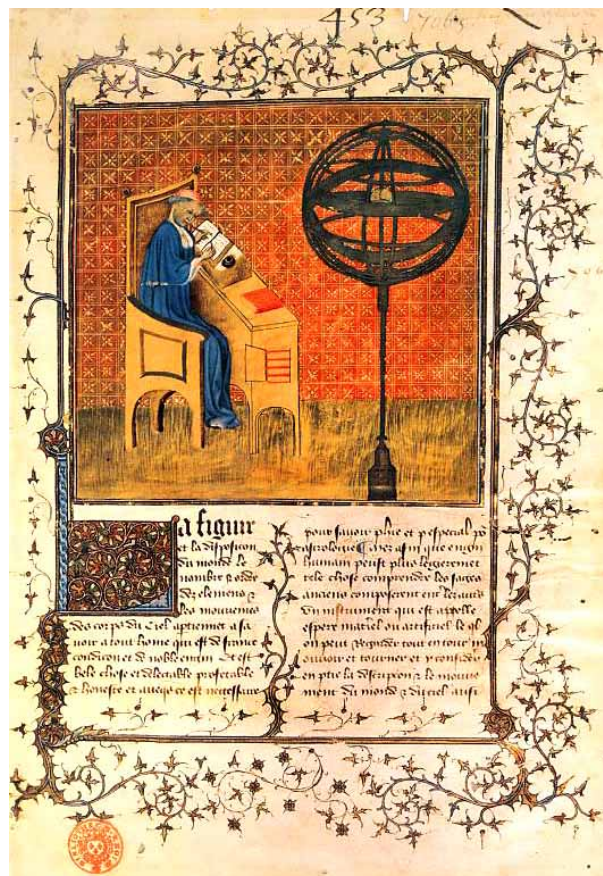 453
7065
La figure
et la disposicion
du monde le
nombre & ordre
des elemens &
les mouvemens
des corps du ciel aptienent a sa
voir a tout home qui est de franche
condicion et de noble engin Et est
bele chose et delectable profetable
& honeste et avecqs ce est necessaire
pour savoir phie et p especial po
astrologie Mes afin que engin
humain puist plus legierement
tele chose comprendre les sages
anciens composerent entre les autres
un instrument qui est appelle
espere materiel ou artificiel le ql
on peut regarder tout entour
mouvoir et tourner et y considerer
en ptie la descripcion & le mouve
ment du monde & du ciel aussi